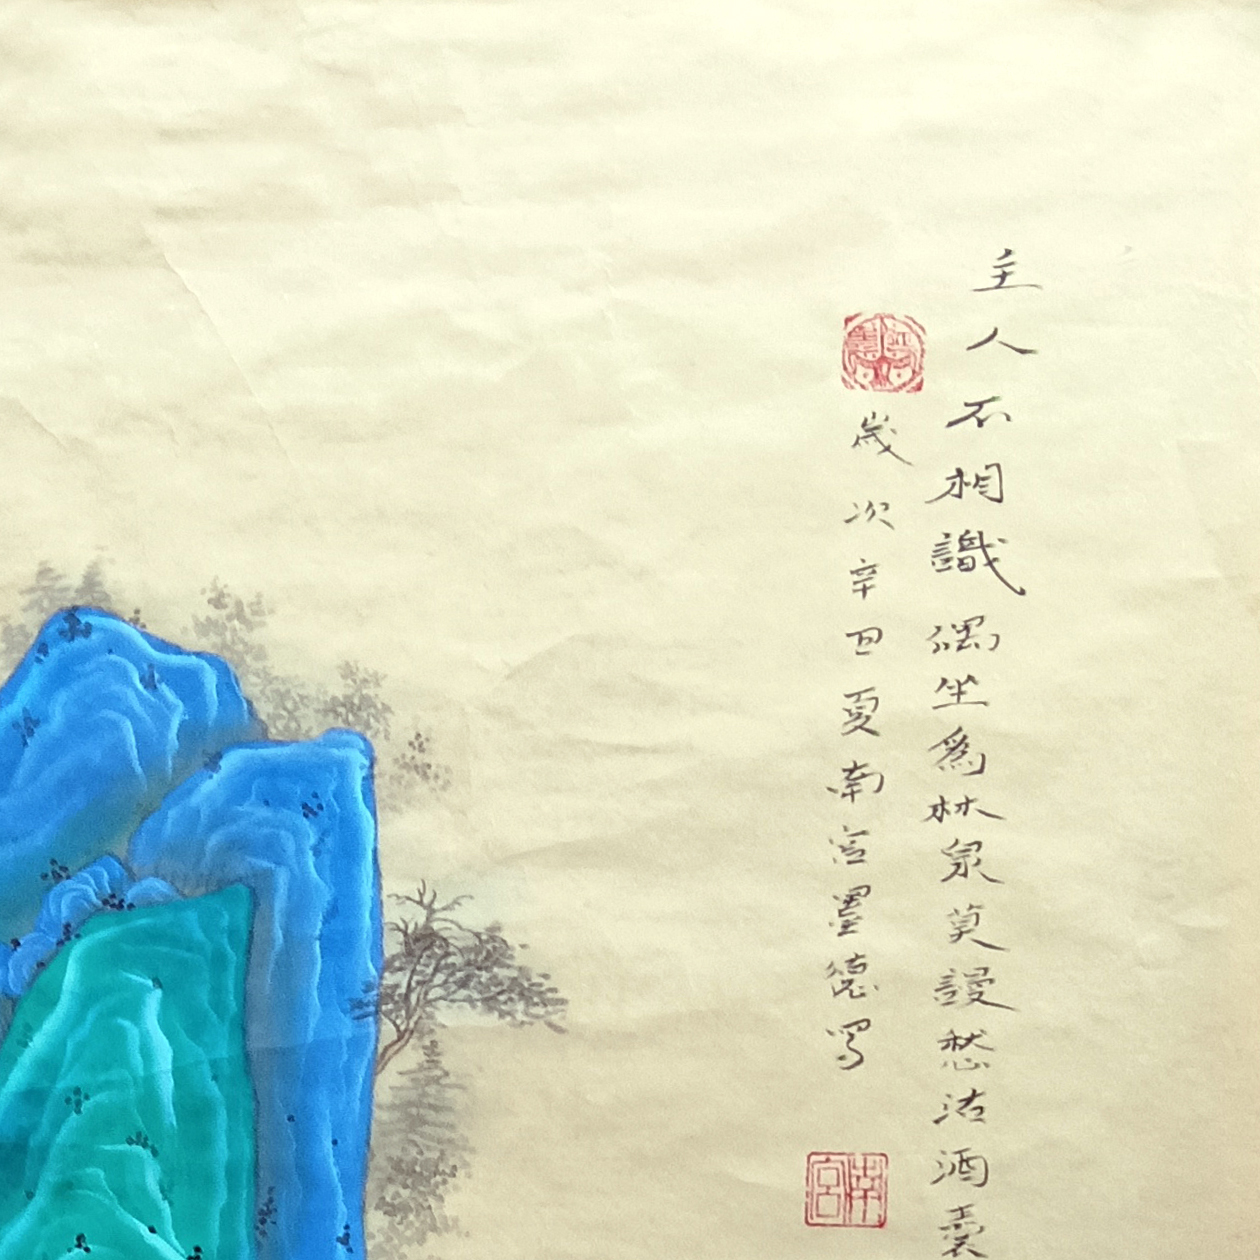 主人不相識偶坐爲林泉莫謾愁沽酒囊
歲次辛丑夏南宮墨德寫
南宮